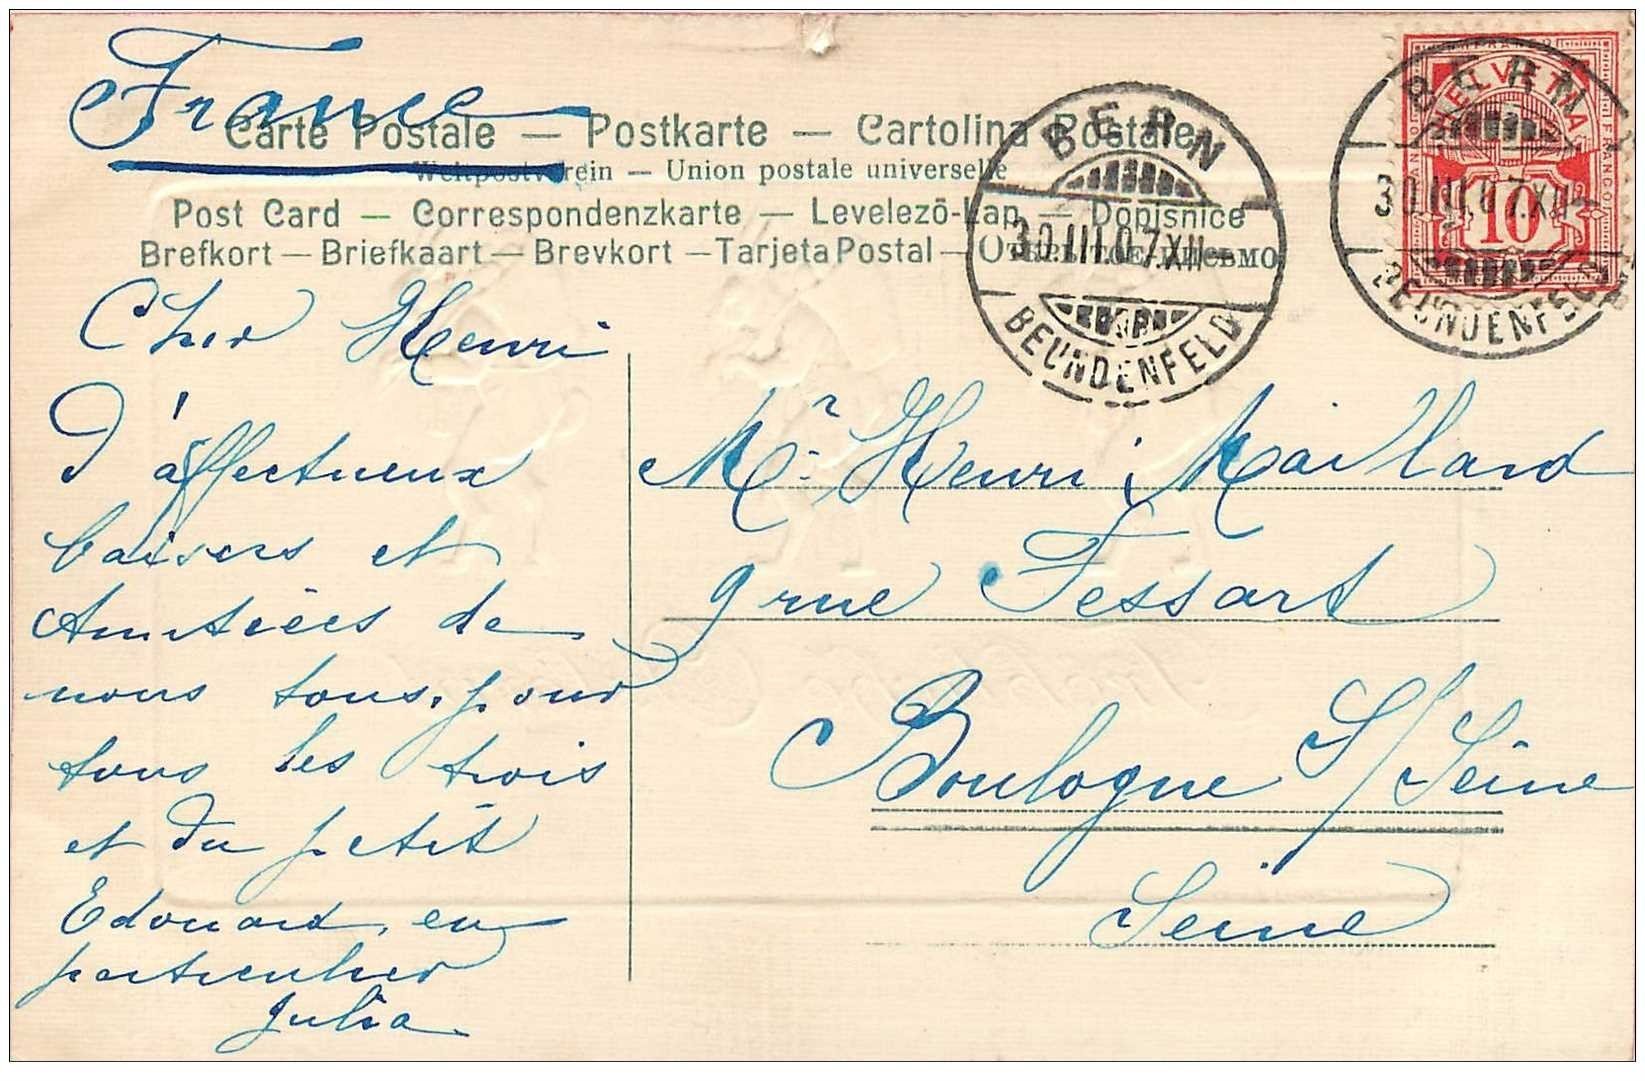 France
Carte Postale — Postkarte — Cartolina Postale
Weltpostverein — Union postale universelle
Post Card — Correspondenzkarte — Levelező-Lap — Dopisnice
Brefkort — Briefkaart — Brevkort — Tarjeta Postal — Открытое письмо
BERN
30.III.07.XII–
BEUNDENFELD
HELVETIA
FRANCO
10
BERN
30.III.07.XII–
BEUNDENFELD
Cher Henri
D'affectueux
baisers et
Amitiées de
nous tous, pour
tous les trois
et du petit
Edouard, en
particulier
Julia
Mr. Henri Maillard
9 rue Fessart
Boulogne S/Seine
Seine